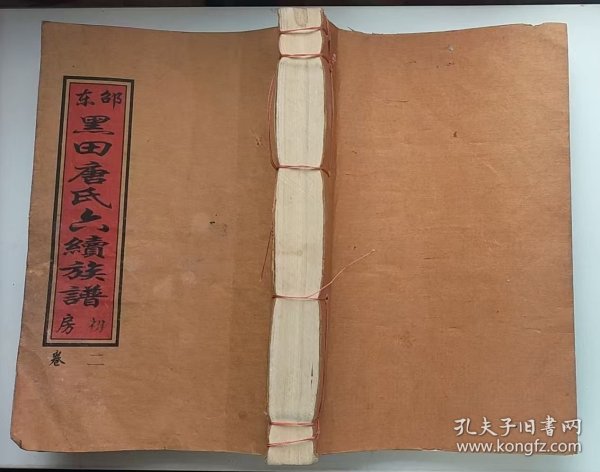 邵东
黑田唐氏六續族譜
初房
卷二
孔夫子旧书网
www.kongfz.com